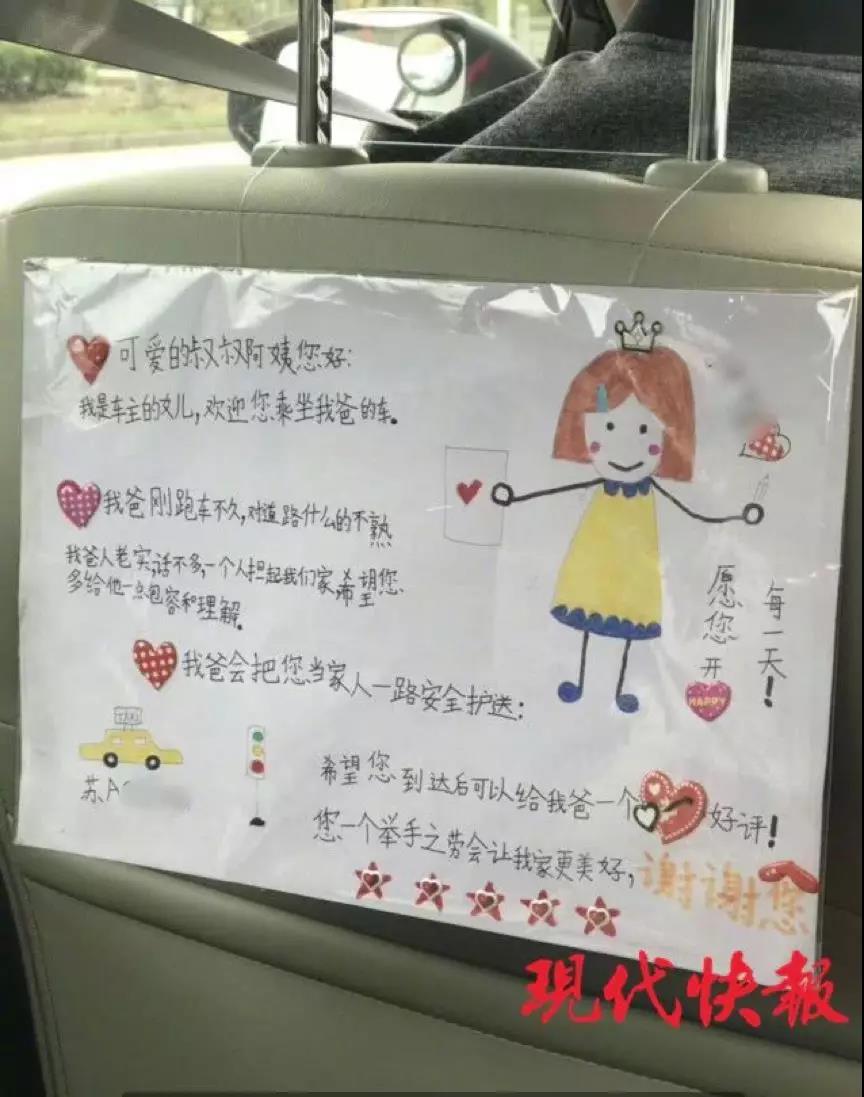 可爱的叔叔阿姨您好:
我是车主的女儿,欢迎您乘坐我爸的车。
我爸刚跑车不久,对道路什么的不熟
我爸人老实,话不多,一个人担起我们家,希望您
多给他一点包容和理解。
我爸会把您当家人一路安全护送:
TAXI
苏A
希望您到达后可以给我爸一个好评!
您一个举手之劳会让我家更美好,谢谢您
每一天!
愿您开
HAPPY
现代快報